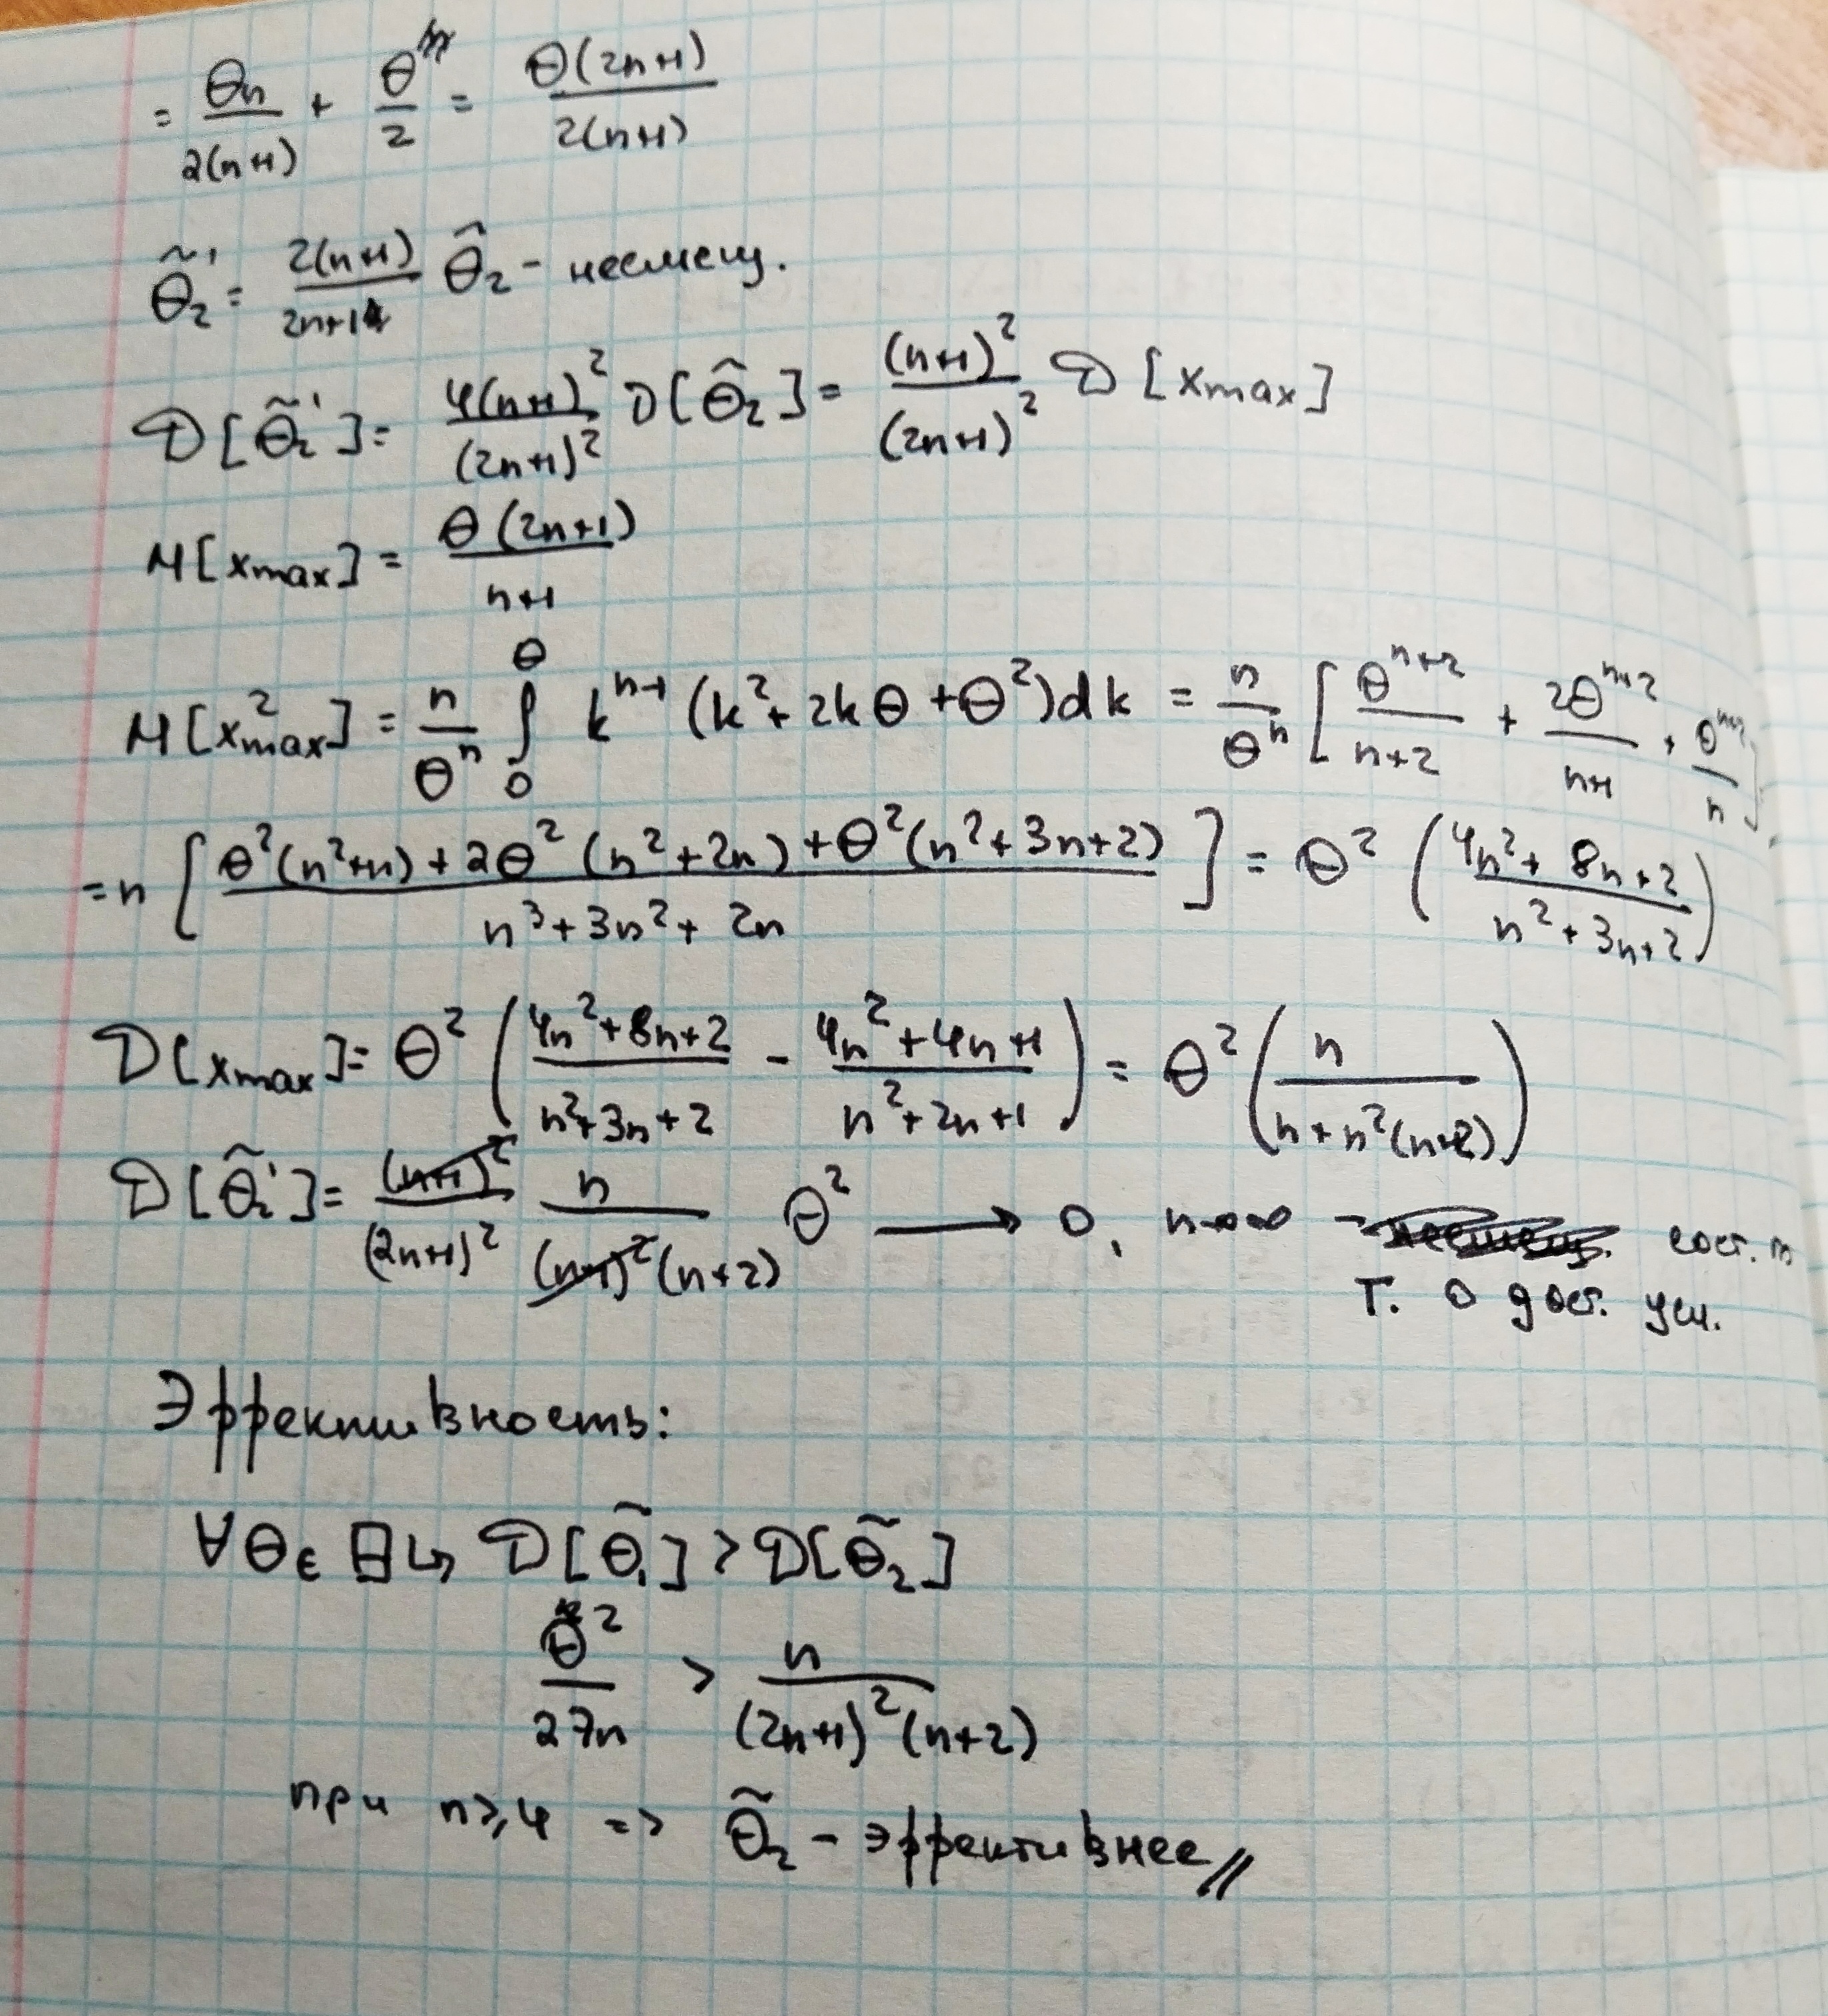 = θn/2(n+1) + θ/2 = θ(2n+1)/2(n+1)
θ̃₂' = 2(n+1)/2n+1 θ̂₂ - несмещ.
D[θ̃₂'] = 4(n+1)²/(2n+1)² D[θ̂₂] = (n+1)²/(2n+1)² D[xmax]
M[xmax] = θ(2n+1)/n+1
M[x²max] = n/θⁿ ∫₀^θ kⁿ⁻¹(k²+2kθ+θ²)dk = n/θⁿ [θⁿ⁺²/n+2 + 2θⁿ⁺²/n+1 + θⁿ⁺²/n]
= n [θ²(n²+n)+2θ²(n²+2n)+θ²(n²+3n+2)/n³+3n²+2n] = θ² (4n²+8n+2/n²+3n+2)
D[xmax] = θ² (4n²+8n+2/n²+3n+2 - 4n²+4n+1/n²+2n+1) = θ² (n/n+n²(n+2))
D[θ̃₂'] = (n+1)²/(2n+1)² n/(n+1)²(n+2) θ² → 0, n→∞ - сост. п
Т. о дост. усл.
Эффективность:
∀θ∈Θ ↳ D[θ̃₁] > D[θ̃₂]
θ²/27n > n/(2n+1)²(n+2)
при n≥4 => θ̃₂ - эффективнее//